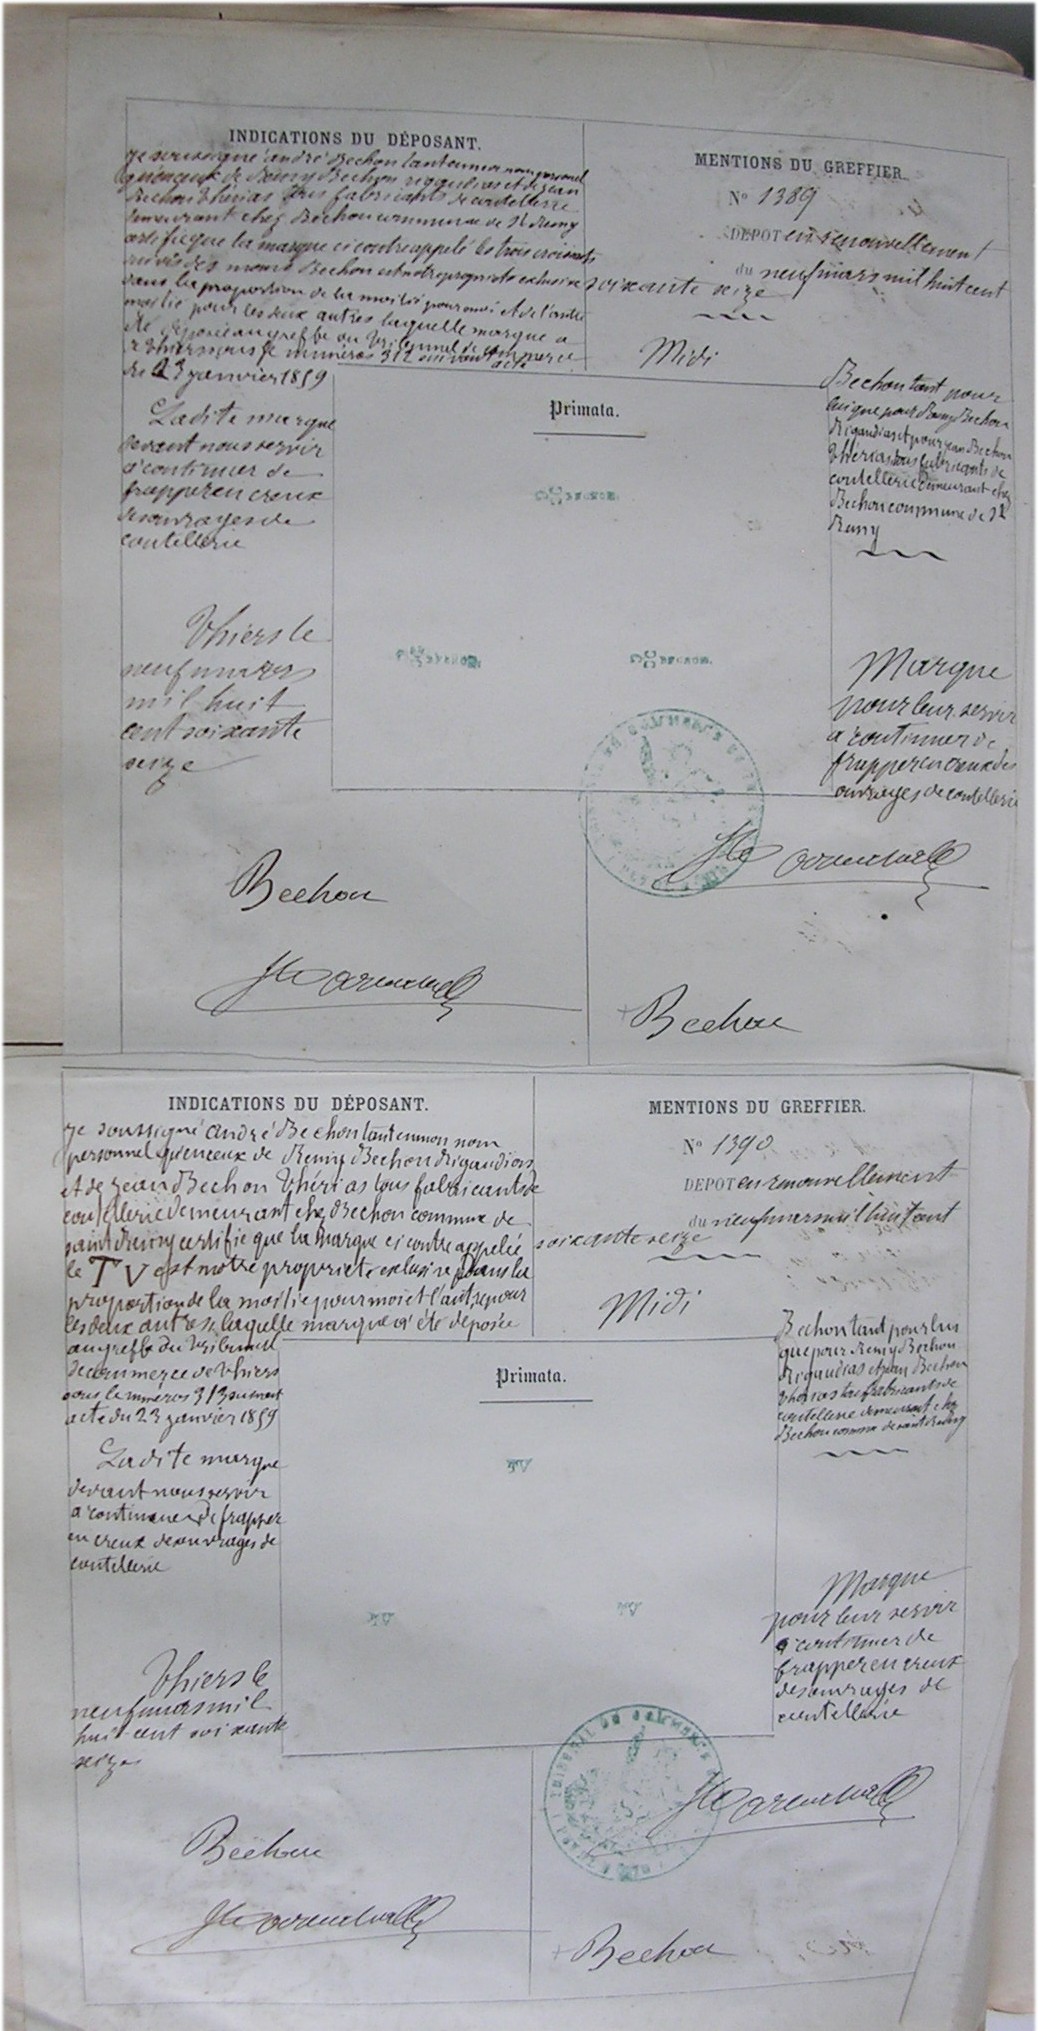 INDICATIONS DU DÉPOSANT.
Je soussigné andré Bechon tant en mon nom personnel
qu'en ceux de Remy Bechon rigaudias et de jean
Bechon thérias tous fabricants de coutellerie
demeurant chez Bechon commune de St Remy
certifie que la marque ci contre appelé les trois croissants
suivis des noms Bechon est notre propriété exclusive
dans la proportion de la moitié pour moi et de l'autre
moitié pour les deux autres laquelle marque a
été déposée au greffe du tribunal de commerce
Thiers sous le numéros 312 suivant acte
du 23 janvier 1859
Ladite marque
devant nous servir
a continuer de
frapper en creux
des ouvrages de
coutellerie
Thiers le
neuf mars
mil huit
cent soixante
seize
Bechon
MENTIONS DU GREFFIER.
No 1389
DÉPOT en renouvellement
du neuf mars mil huit cent
soixante seize
Midi
Primata.
Bechon tant pour
lui que pour Remy Bechon
Rigaudias et pour jean Bechon
thérias tous fabricants de
coutellerie demeurant chez
Bechon commune de St
Remy
Marque
pour leur servir
a continuer de
frapper en creux des
ouvrages de coutellerie
Bechon
INDICATIONS DU DÉPOSANT.
Je soussigné andré Bechon tant en mon nom
personnel qu'en ceux de Remy Bechon Rigaudias
et de jean Bechon thérias tous fabricants de
coutellerie demeurant chez Bechon commune de
saint Remy certifie que la marque ci contre appelée
le T V est notre propriété exclusive dans la
proportion de la moitié pour moi et l'autre pour
les deux autres, laquelle marque a été déposée
au greffe du tribunal
de commerce de Thiers
sous le numéros 313 suivant
acte du 23 janvier 1859
Ladite marque
devant nous servir
a continuer de frapper
en creux des ouvrages de
coutellerie
Thiers le
neuf mars mil
huit cent soixante
seize
Bechon
MENTIONS DU GREFFIER.
No 1390
DÉPOT en renouvellement
du neuf mars mil huit cent
soixante seize
Midi
Primata.
Bechon tant pour lui
que pour Remy Bechon
Rigaudias et jean Bechon
thérias tous fabricants de
coutellerie demeurant chez
Bechon commune de saint Remy
Marque
pour leur servir
a continuer de
frapper en creux
des ouvrages de
coutellerie
Bechon